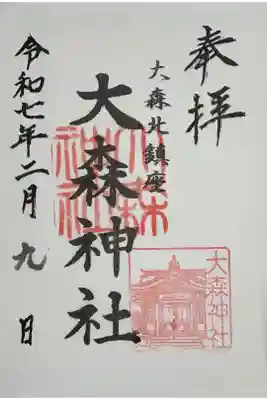 奉拝
大森北鎮座
大森神社
大森神社
大森神社
令和七年二月九日